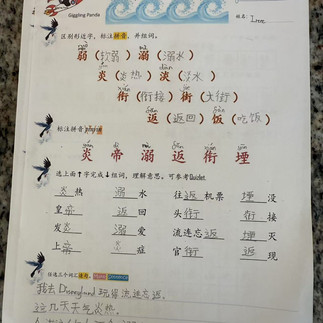 Giggling Panda
姓名:
区别形近字，标注拼音，并组词。
弱(软弱) 溺(溺水)
炎(炎热) 淡(淡水)
衔(衔接) 街(大街)
返(返回) 饭(吃饭)
标注拼音
炎 帝 溺 返 衔 堙
选上面↑字完成↓组词，理解意思。可参考Quizlet.
炎热 溺水 往返机票 堙没
皇帝 返回 头衔 衔接
发炎 溺爱 流连忘返 堙灭
上帝 炎症 官衔 返现
任选三个词汇造句
我去Disneyland玩得流连忘返。
这几天天气炎热。